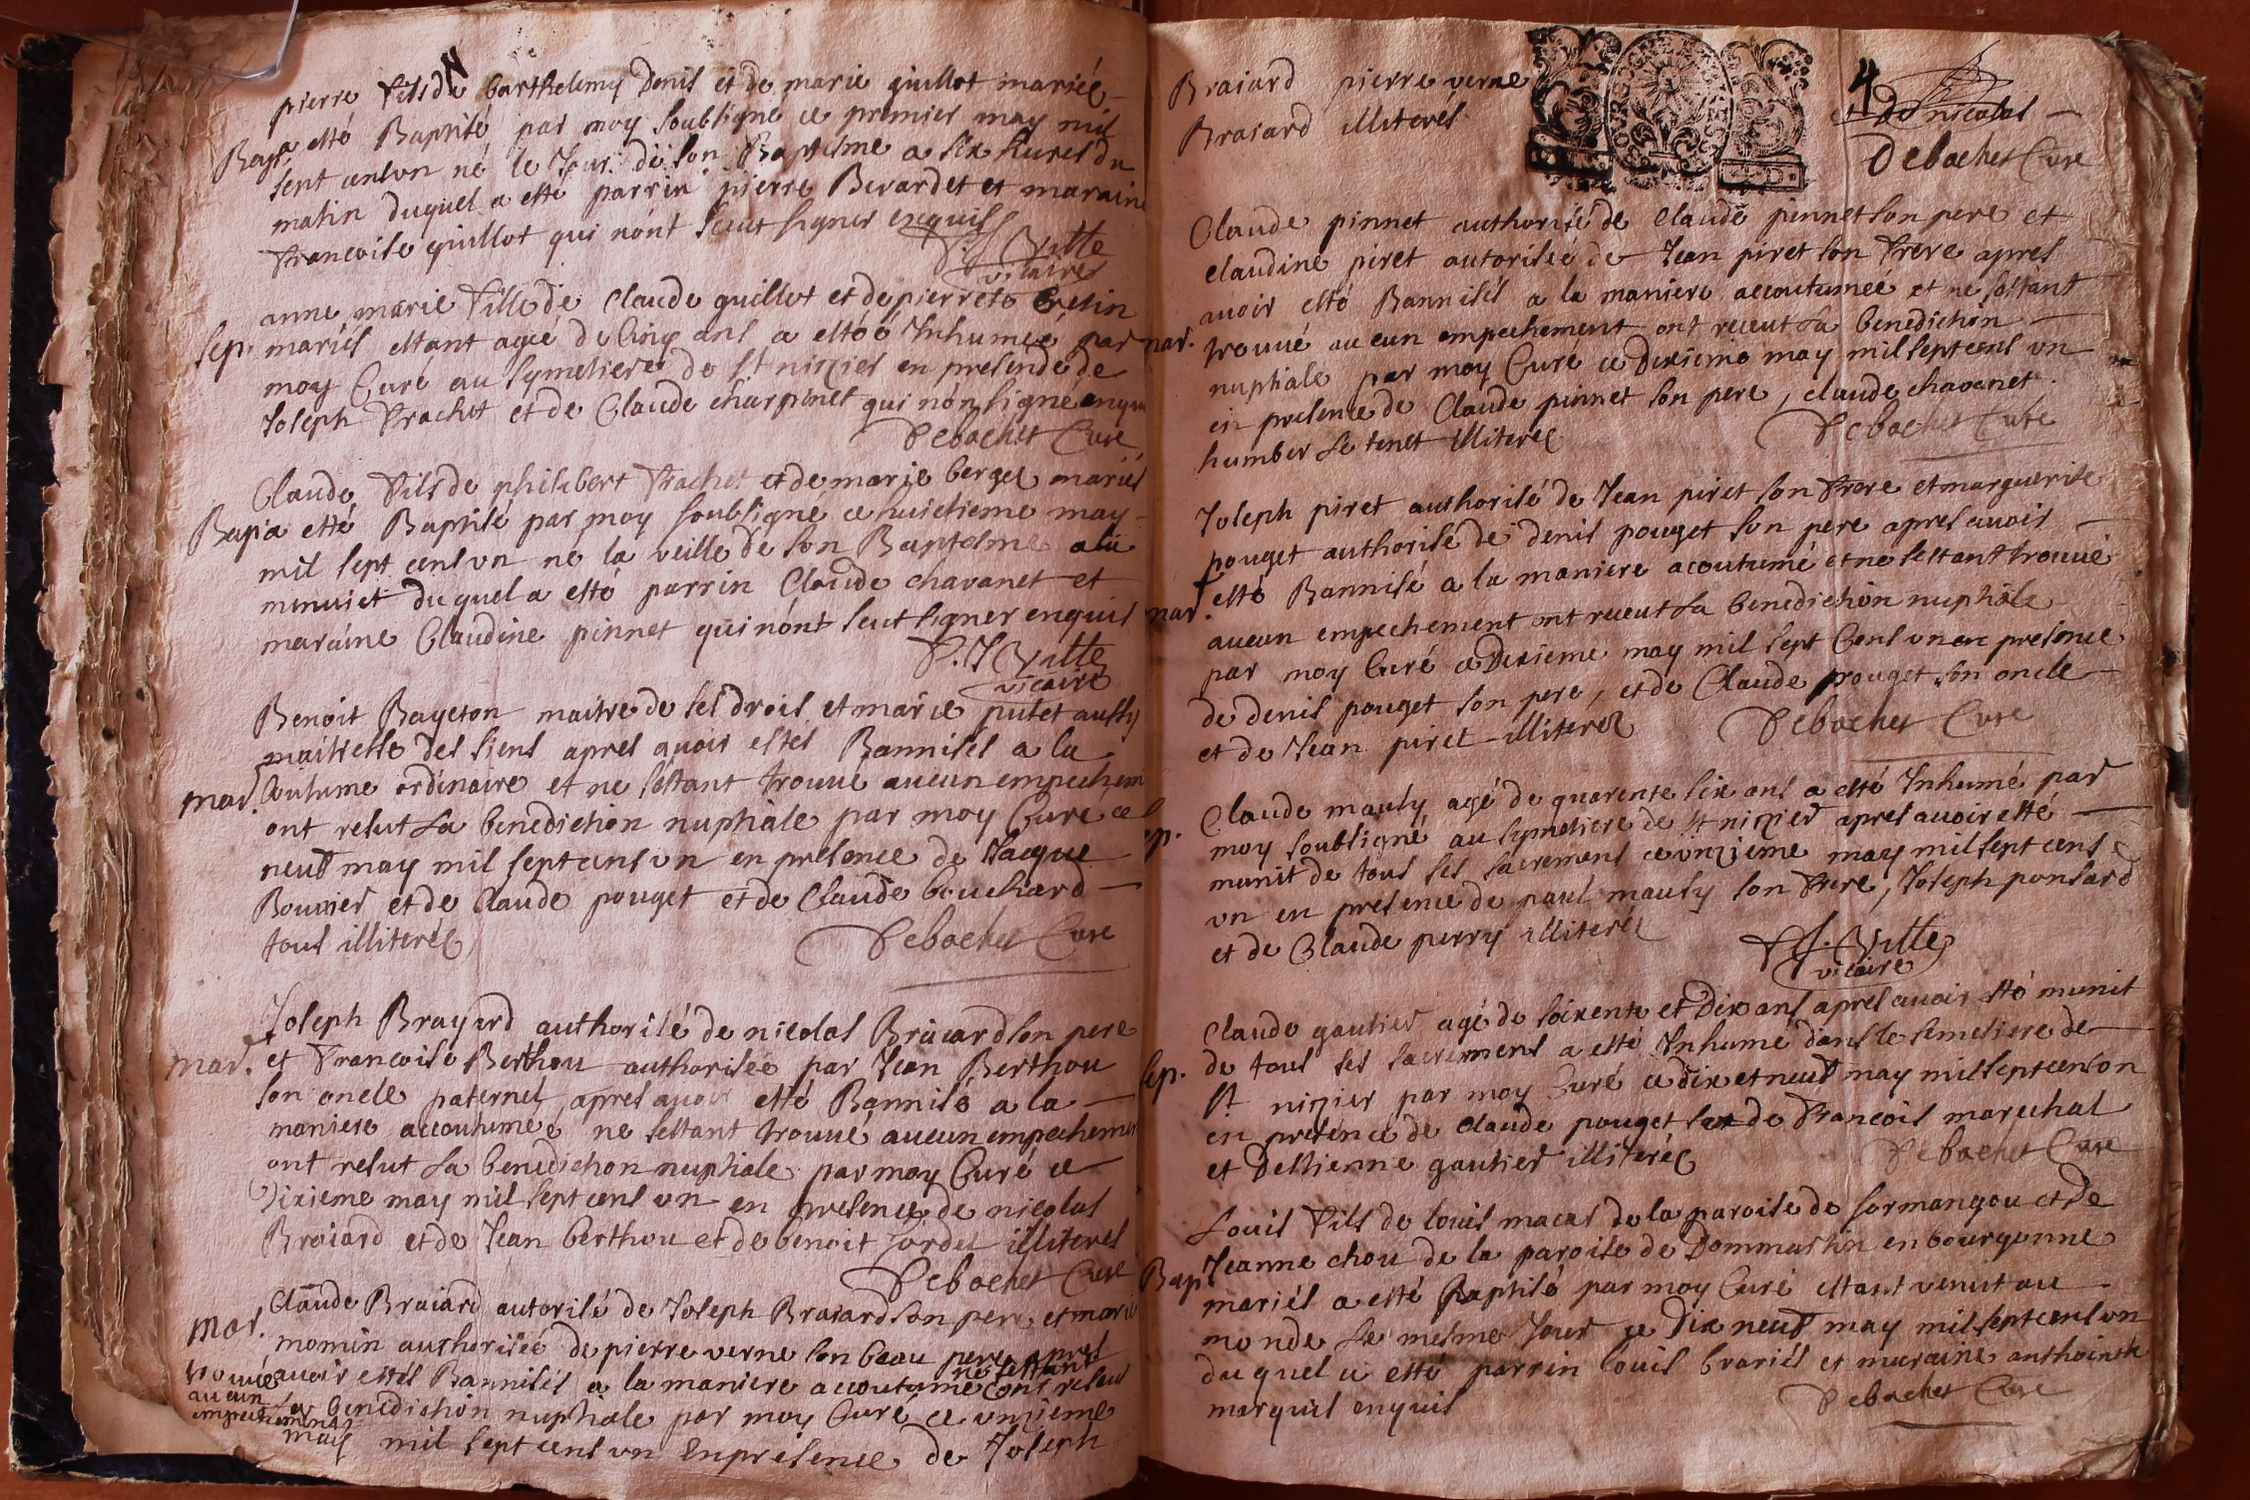 pierre fils de barthelemy Denis et de marie guillot mariés
Bap. a esté Baptisé par moy soubsigné ce premier may mil
sept cens un né le Jour de son Baptisme a six hures du
matin duquel a esté parrin pierre Berardet et maraine
francoise guillot qui n'ont sceut signer enquis
Vitte
vicaire
anne marie fille de Claude guillot et de pierrete Cretin
sep. mariés estant agée de Cinq ans a estoé Inhumée par
moy Curé au symetiere de st nizier en presence de
Joseph frachet et de Claude charpenet qui n'on signé enquis
Debochet Curé
Claude fils de philibert frachet et de marie berger mariés
Bap. a esté Baptisé par moy soubsigné ce huictieme may
mil sept cens un né la veille de son Baptesme a la
minuict duquel a esté parrin Claude chavanet et
maraine Claudine pinnet qui n'ont sceut signer enquis
P. J. Vitte
vicaire
Benoit Bayeton maitre de ses drois et marie putet aussy
maitresse des siens apres avoir estes Bannisés a la
mar. Coutume ordinaire et ne sestant trouvé aucun empechem
ont resut La benediction nuptiale par moy Curé ce
neuf may mil sept cens un en presence de Jacque
Bouvier et de Claude pouget et de Claude bouchard
tous illiterés
Debochet Curé
Joseph Brayard authorisé de nicolas Braiard son pere
mar. et francoise Berthou authorisée par Jean Berthou
son oncle paternel apres avoir esté Bannisé a la
maniere accoutumée ne sestant trouvé aucun empechemen
ont resut La benediction nuptiale par moy Curé ce
Dixieme may mil sept cens un en presence de nicolas
Braiard et de Jean berthou et de benoit Jordes illiteres
Debochet Curé
mar. Claude Braiard autorisé de Joseph Braiard son pere et marie
momin authorisée de pierre verne son beau pere apres
avoir estés Bannisés a la maniere accoutumé ne sestant
trouvé aucun empechement
ont resut
La benediction nuptiale par moy Curé ce unzieme
may mil sept cens un En presence de Joseph
Braiard pierre verne
Braiard illiterés
4
De nicolas
Debochet Curé
Claude pinnet authorisé de Claude pinnet son pere et
claudine piret autorisée de Jean piret son frere apres
avoir esté Bannisés a la maniere accoutumée et ne sestant
mar. trouvé aucun empechement ont receut La benediction
nuptiale par moy Curé ce Dixieme may mil sept cens un
en presence de Claude pinnet son pere, claude chavanet
humber Le tenet illiterés
Debochet Curé
Joseph piret authorisé de Jean piret son frere et marguerite
pouget authorisé de denis pouget son pere apres avoir
esté Bannisé a la maniere acoutumé et ne sestant trouvé
mar. aucun empechement ont receut La benediction nuptiale
par moy Curé ce Dixieme may mil sept Cens un en presence
de denis pouget son pere, et de Claude pouget son oncle
et de Jean piret illiteres
Debochet Curé
Claude mausy agé de quarente six ans a esté Inhumé par
sep. moy soubsigné au symetiere de st nizier apres avoir esté
munit de tous ses sacremens ce unzieme may mil sept cens
un en presence de paul mausy son frere, Joseph ponsard
et de Claude perry illiterés
Vitte
vicaire
Claude gautier agé de soixente et Dix ans apres avoir esté munit
de tous ses sacremens a esté Inhumé dans le semetiere de
sep. st nizier par moy Curé ce dix et neuf may mil sept cens un
en presence de Claude pouget et de francois marechal
et Destienne gautier illiterés
Debochet Curé
Louis fils de louis macas de la paroise de sormangou et de
Jeanne chou de la paroise de Dommartin en bourgonne
Bap. mariés a esté Baptisé par moy Curé estant venut au
monde Le mesme Jour ce Dix neuf may mil sept cens un
duquel a esté parrin louis brariés et maraine anthoinette
marquis enquis
Debochet Curé